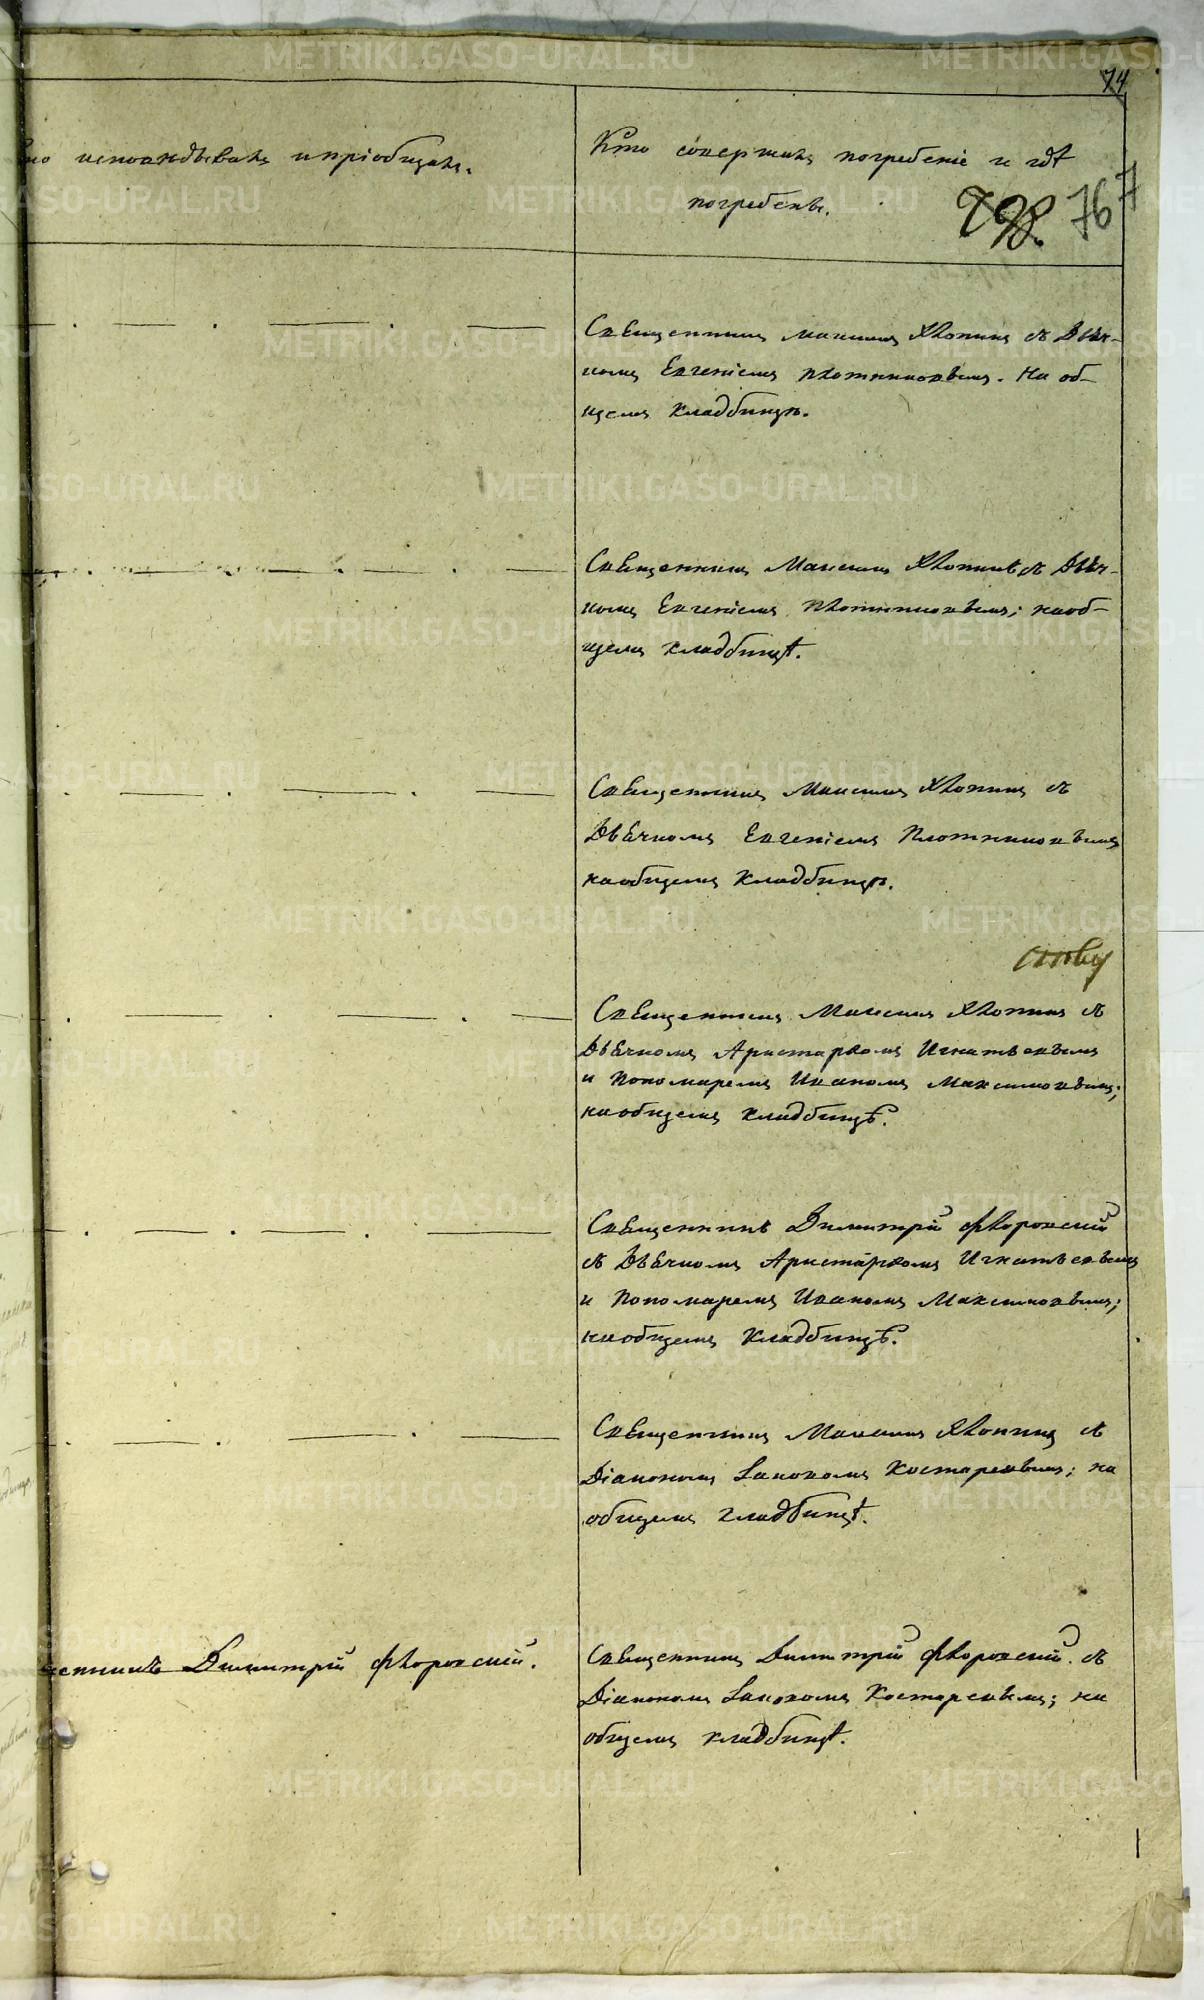 74
исповѣдывалъ и пріобщалъ.
Кто совершалъ погребеніе и гдѣ
погребены.
798. 767
Священникъ Максимъ Хлопинъ съ Дьяч-
комъ Евгеніемъ Плотниковымъ. На об-
щемъ кладбищѣ.
Священникъ Максимъ Хлопинъ съ Дьяч-
комъ Евгеніемъ Плотниковымъ; на об-
щемъ кладбищѣ.
Священникъ Максимъ Хлопинъ съ
Дьячкомъ Евгеніемъ Плотниковымъ
на общемъ кладбищѣ.
Священникъ Максимъ Хлопинъ съ
Дьячкомъ Аристархомъ Игнатьевымъ
и Пономаремъ Иваномъ Максимовымъ;
на общемъ кладбищѣ.
Священникъ Димитрій Флоровскій
съ Дьячкомъ Аристархомъ Игнатьевымъ
и Пономаремъ Иваномъ Максимовымъ;
на общемъ кладбищѣ.
Священникъ Максимъ Хлопинъ съ
Діакономъ Іаковомъ Костаревымъ; на
общемъ кладбищѣ.
Димитрій Флоровскій.
Священникъ Димитрій Флоровскій съ
Діакономъ Іаковомъ Костаревымъ; на
общемъ кладбищѣ.
METRIKI.GASO-URAL.RU